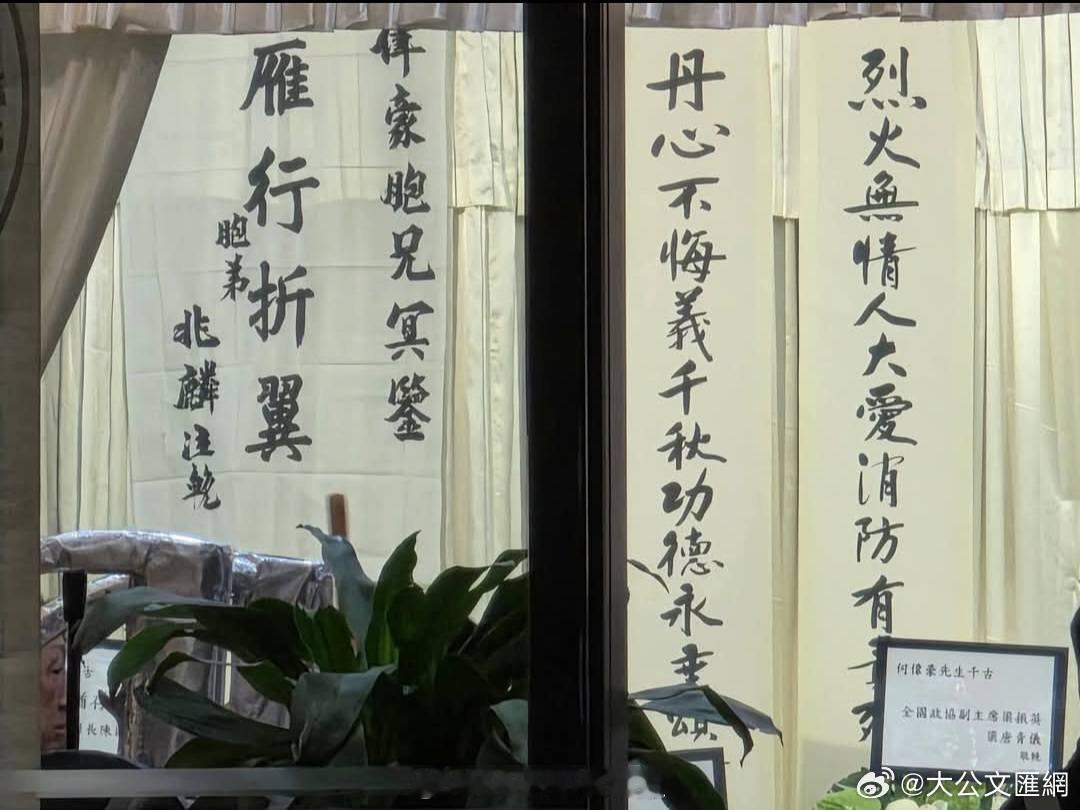 烈火無情人大愛消防有
丹心不悔義千秋功德永
偉豪胞兄冥鑒
雁行折翼
胞弟
兆麟泣輓
何偉豪先生千古
全國政協副主席梁振英
梁唐青儀
敬輓
古
長陳
@大公文匯網